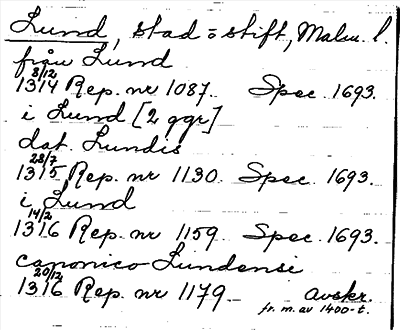 Lund, stad o stift, Malm. l.
från Lund
1314 8/12 Rep. nr 1087. Spec. 1693.
i Lund [2 ggr]
dat. Lundis
1315 28/7 Rep. nr 1130. Spec. 1693.
i Lund
1316 14/2 Rep. nr 1159 Spec. 1693.
canonico Lundensi
1316 20/12 Rep. nr 1179 avskr.
fr. m. av 1400-t.